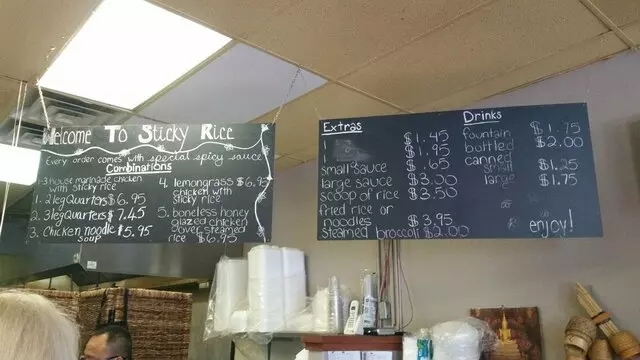 Welcome To Sticky Rice
Every order comes with special spicy sauce
Combinations
1-3 house marinade chicken
with sticky rice
1. 2 leg Quarters $6.95
2. 3 leg Quarters $7.45
3. Chicken noodle $5.95
soup
4. lemongrass $6.95
chicken with
sticky rice
5. boneless honey
glazed chicken
over steamed
rice $6.95
Extras
$1.45
.95
small sauce .65
large sauce $3.00
scoop of rice $3.50
fried rice or
noodles $3.95
steamed broccoli $2.00
Drinks
fountain $1.75
bottled $2.00
canned
small $1.25
large $1.75
enjoy!